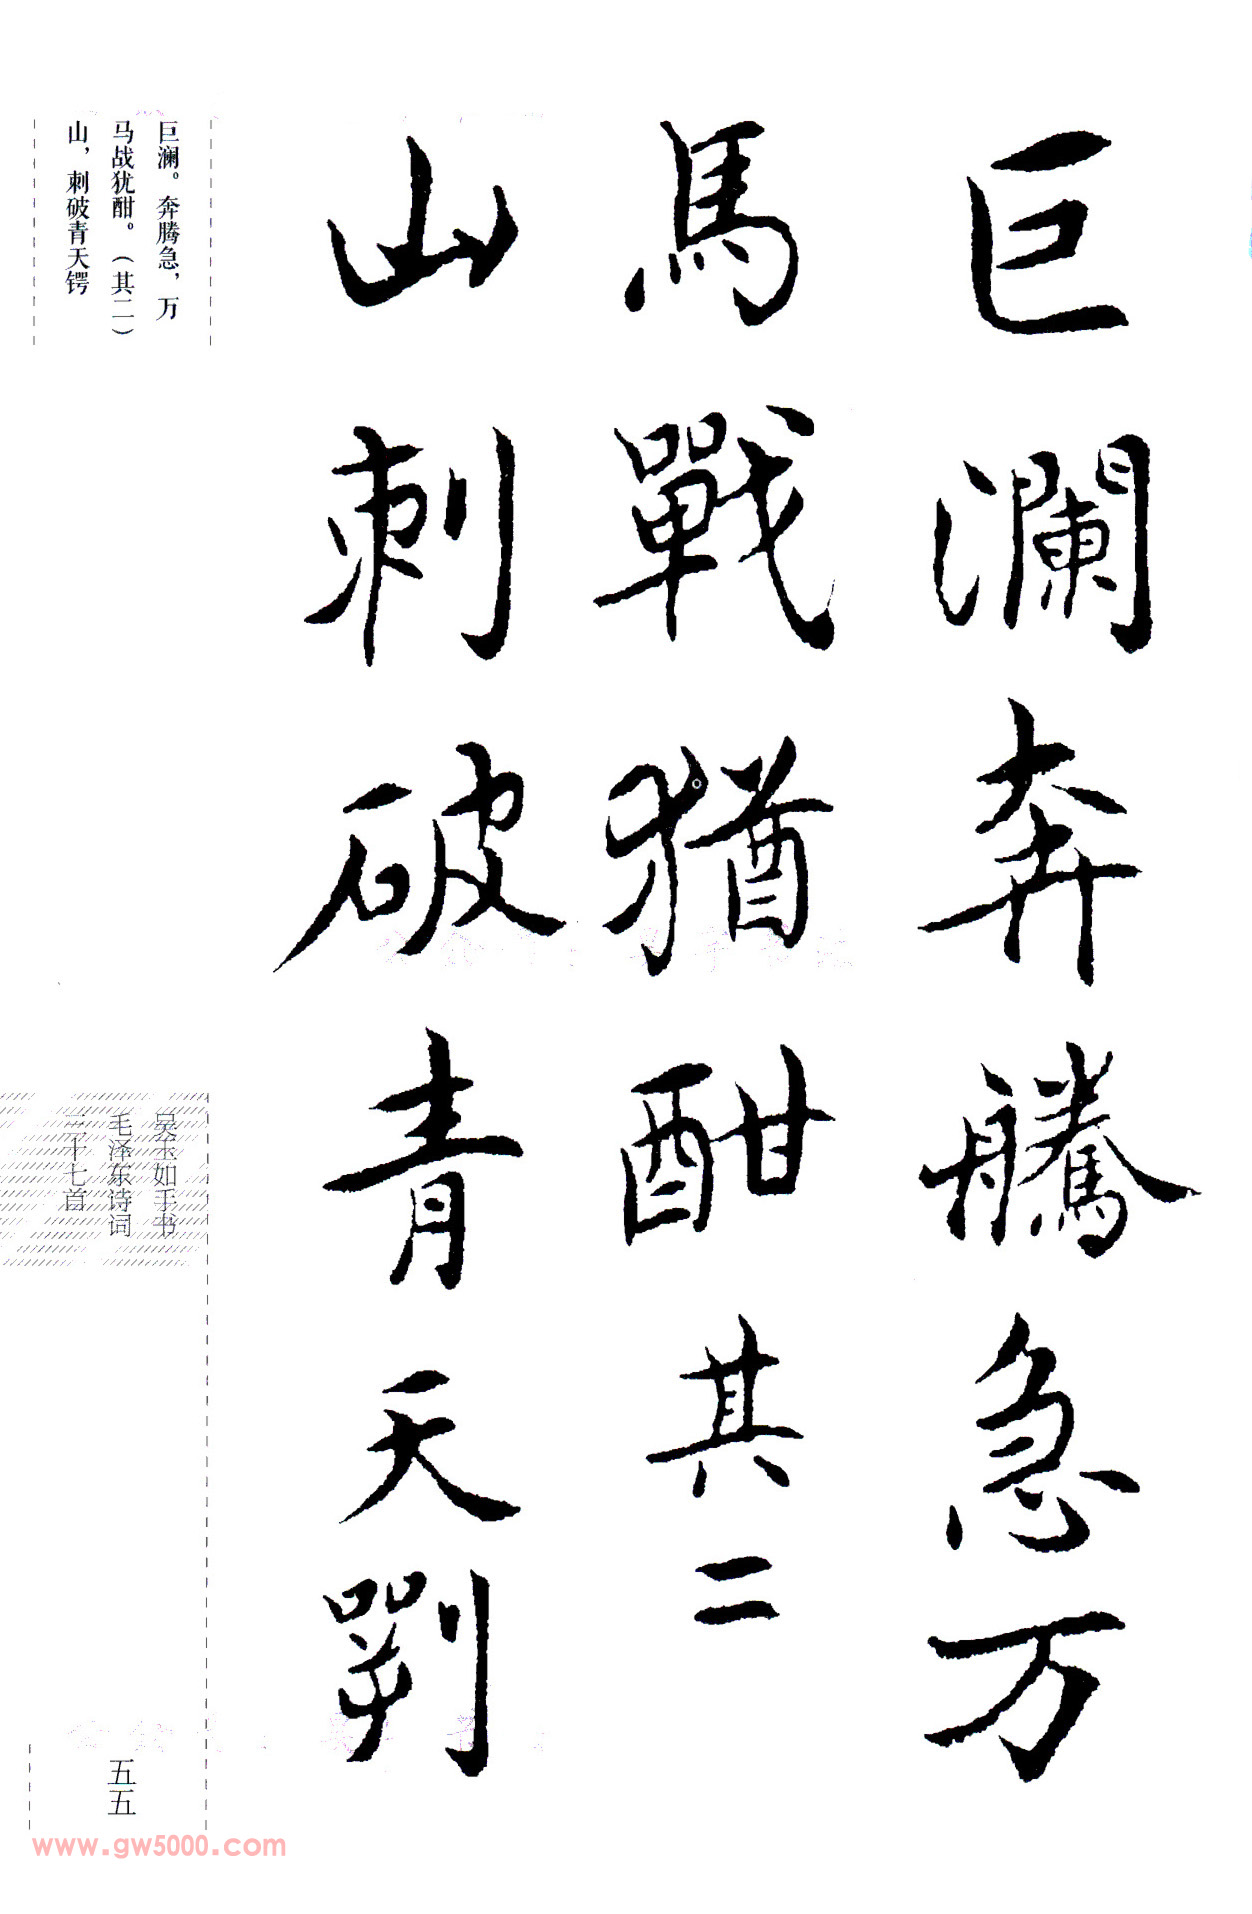 巨瀾奔騰急万
馬戰猶酣其二
山刺破青天㓵
巨澜。奔腾急，万
马战犹酣。（其二）
山，刺破青天锷
吴玉如手书
毛泽东诗词
三十七首
五五
www.gw5000.com